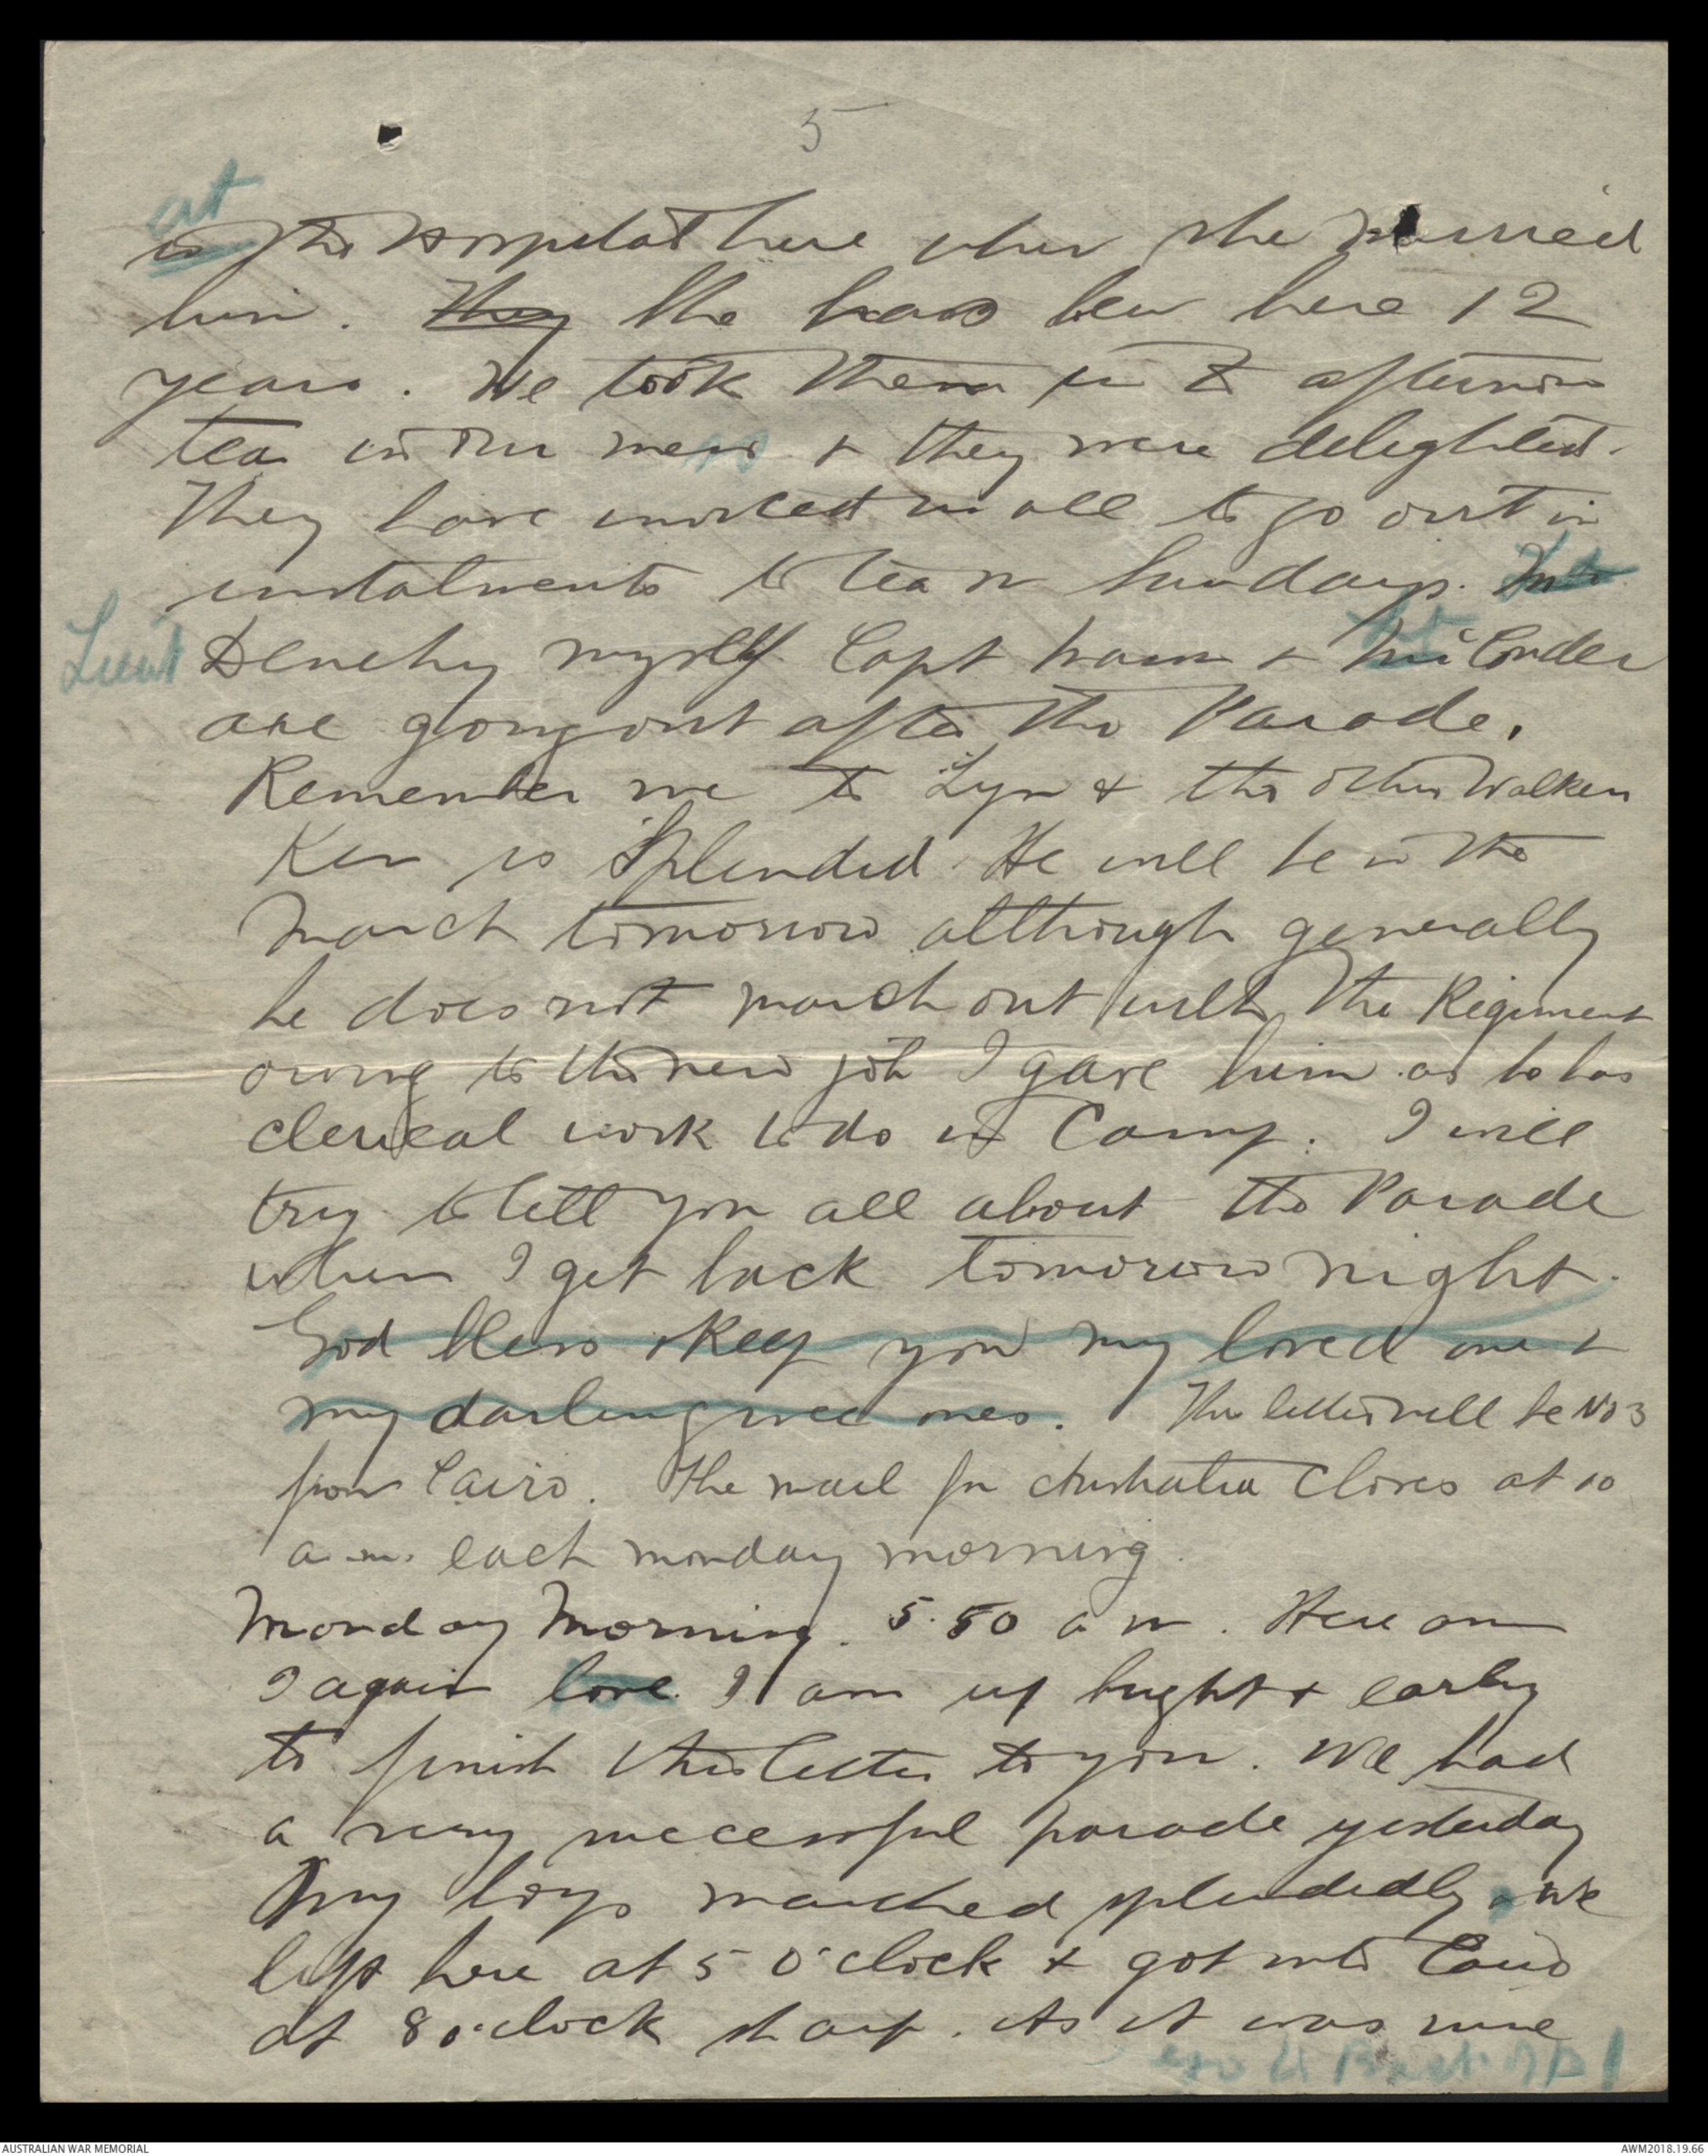 5
at
in the Hospital here when she married
him. They She has been here 12
years. We took them in to afternoon
tea in our mess & they were delighted.
They have invited us all to go out in
instalments to tea on Sundays.
Lieut Denehy myself Capt & Lt Conder
are going out after the Parade.
Remember me to Lyn & the other Walkers
Ken is Splendid. He will be in the
March tomorrow although generally
he does not march out with the Regiment
owing to the new job I gave him as he has
clerical work to do in Camp. I will
try to tell you all about the Parade
when I get back tomorrow night.
God bless & keep you my loved one &
my darling wee ones. This letter will be No 3
from Cairo. The mail for Australia Closes at 10
a.m. each monday morning.
Monday Morning. 5.50 a m. Here am
I again love. I am up bright & early
to finish this letter to you. We had
a very successful parade yesterday
My boys marched splendidly. We
left here at 5 o'clock & got into Cairo
at 8 o'clock sharp. As it was nine
AUSTRALIAN WAR MEMORIAL
AWM2018.19.66